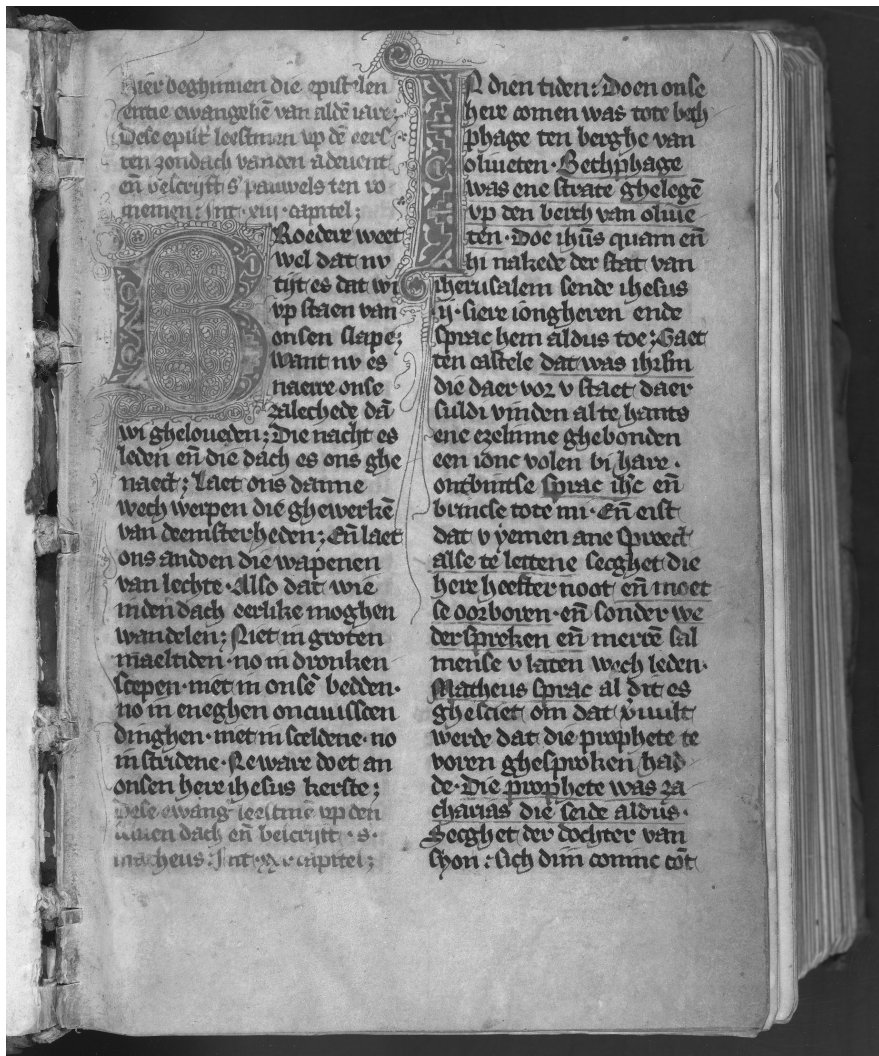 Hier beghinnen die epistelen
entie ewangeliē van aldē iare;
Dese epist' leestmen vp dē eers
ten zondach vanden aduent
eñ bescrijft s' pauwels ten ro
menen; Int · xiij · capitel;
BRoedere weet
wel dat nv
tijt es dat wi
vp staen van
onsen slape;
want nv es
naerre onse
zalechede dā
wi gheloueden; Die nacht es
leden eñ die dach es ons ghe
naect; Laet ons danne
wech werpen die ghewerkē
van deemsterheden; Eñ laet
ons andoen die wapenen
van lechte · Also dat wie
in den dach eerlike moghen
wandelen; Niet in groten
maeltiden · no in dronken
scepen · niet in onsē bedden ·
no in eneghen oncuusscen
dinghen · niet in sceldene · no
in stridene · Neware doet an
onsen here ihesus kerste;
Dese ewang' leestmē vp den
seluen dach eñ bescrijft · s ·
matheus; Int · xxi · capitel;
IN dien tiden; Doen onse
here comen was tote beth
phage ten berghe van
oliueten · Bethphage
was ene strate gheleghē
vp den berch van oliue
ten · Doe ihūs quam eñ
hi nakede der stat van
iherusalem sende ihesus
· ij · siere iongheren ende
sprac hem aldus toe; Gaet
ten castele dat was ihrlm
die daer vor v staet daer
suldi vinden al te hants
ene ezelinne ghebonden
een ionc volen bi hare ·
ontbintse sprac ihc eñ
brincse tote mi · Eñ eist
dat v yemen ane sprect
alse te lettene secghet die
here heefter noot eñ moet
se oorboren · eñ sonder we
derspreken eñ merrē sal
mense v laten wech leden ·
Matheus sprac al dit es
ghesciet om dat v̄uult
werde dat die prophete te
voren ghesproken had
de · Die prophete was za
charias die seide aldus ·
Secghet der dochter van
syon: sich dijn coninc cōt